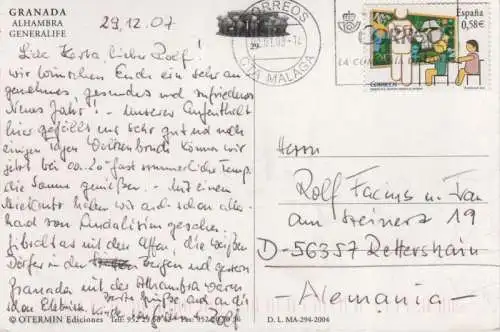 GRANADA
ALHAMBRA
GENERALIFE
29.12.07
CORREOS
CTA MALAGA
España
0,58€
CORREOS
Liebe Herta, lieber Rolf!
wir wünschen Euch ein sehr an-
genehmes, gesundes und zufriedenes
Neues Jahr! - Unserer Aufenthalt
hier gefällt uns sehr gut und nach
einigen Tagen können wir
jetzt bei ca. 20° fast sommerliche Temp.
die Sonne genießen. - Mit einem
haben wir auch schon aller-
hand von Andalusien gesehen.
Gibraltar mit den Affen, die weißen
Dörfer in den Bergen und gestern
Granada mit der Alhambra waren
schon Erlebnisse. Grüße, auch an die
Rolf
Herrn
Rolf Facius u. Frau
am Steinerz 19
D-56357 Rettershain
Alemania
© OTERMIN Ediciones
D. L. MA-294-2004